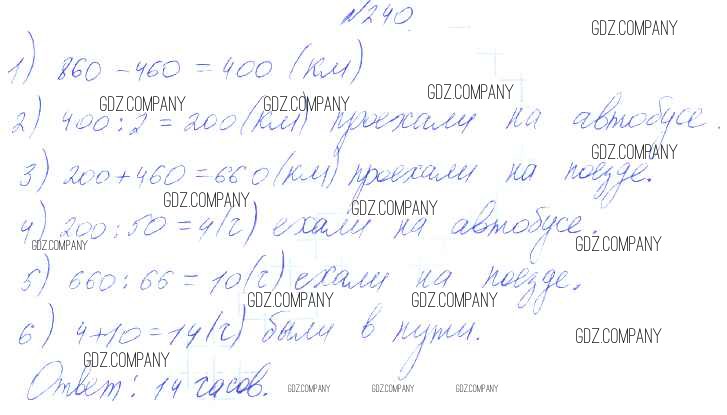 №240.
GDZ.COMPANY
1) 860 - 460 = 400 (км)
GDZ.COMPANY GDZ.COMPANY GDZ.COMPANY
2) 400 : 2 = 200 (км) проехали на автобусе.
GDZ.COMPANY
3) 200 + 460 = 660 (км) проехали на поезде.
GDZ.COMPANY GDZ.COMPANY
4) 200 : 50 = 4 (ч) ехали на автобусе.
GDZ.COMPANY GDZ.COMPANY
5) 660 : 66 = 10 (ч) ехали на поезде.
GDZ.COMPANY GDZ.COMPANY
6) 4 + 10 = 14 (ч) были в пути.
GDZ.COMPANY
GDZ.COMPANY
Ответ: 14 часов.
GDZ.COMPANY GDZ.COMPANY GDZ.COMPANY